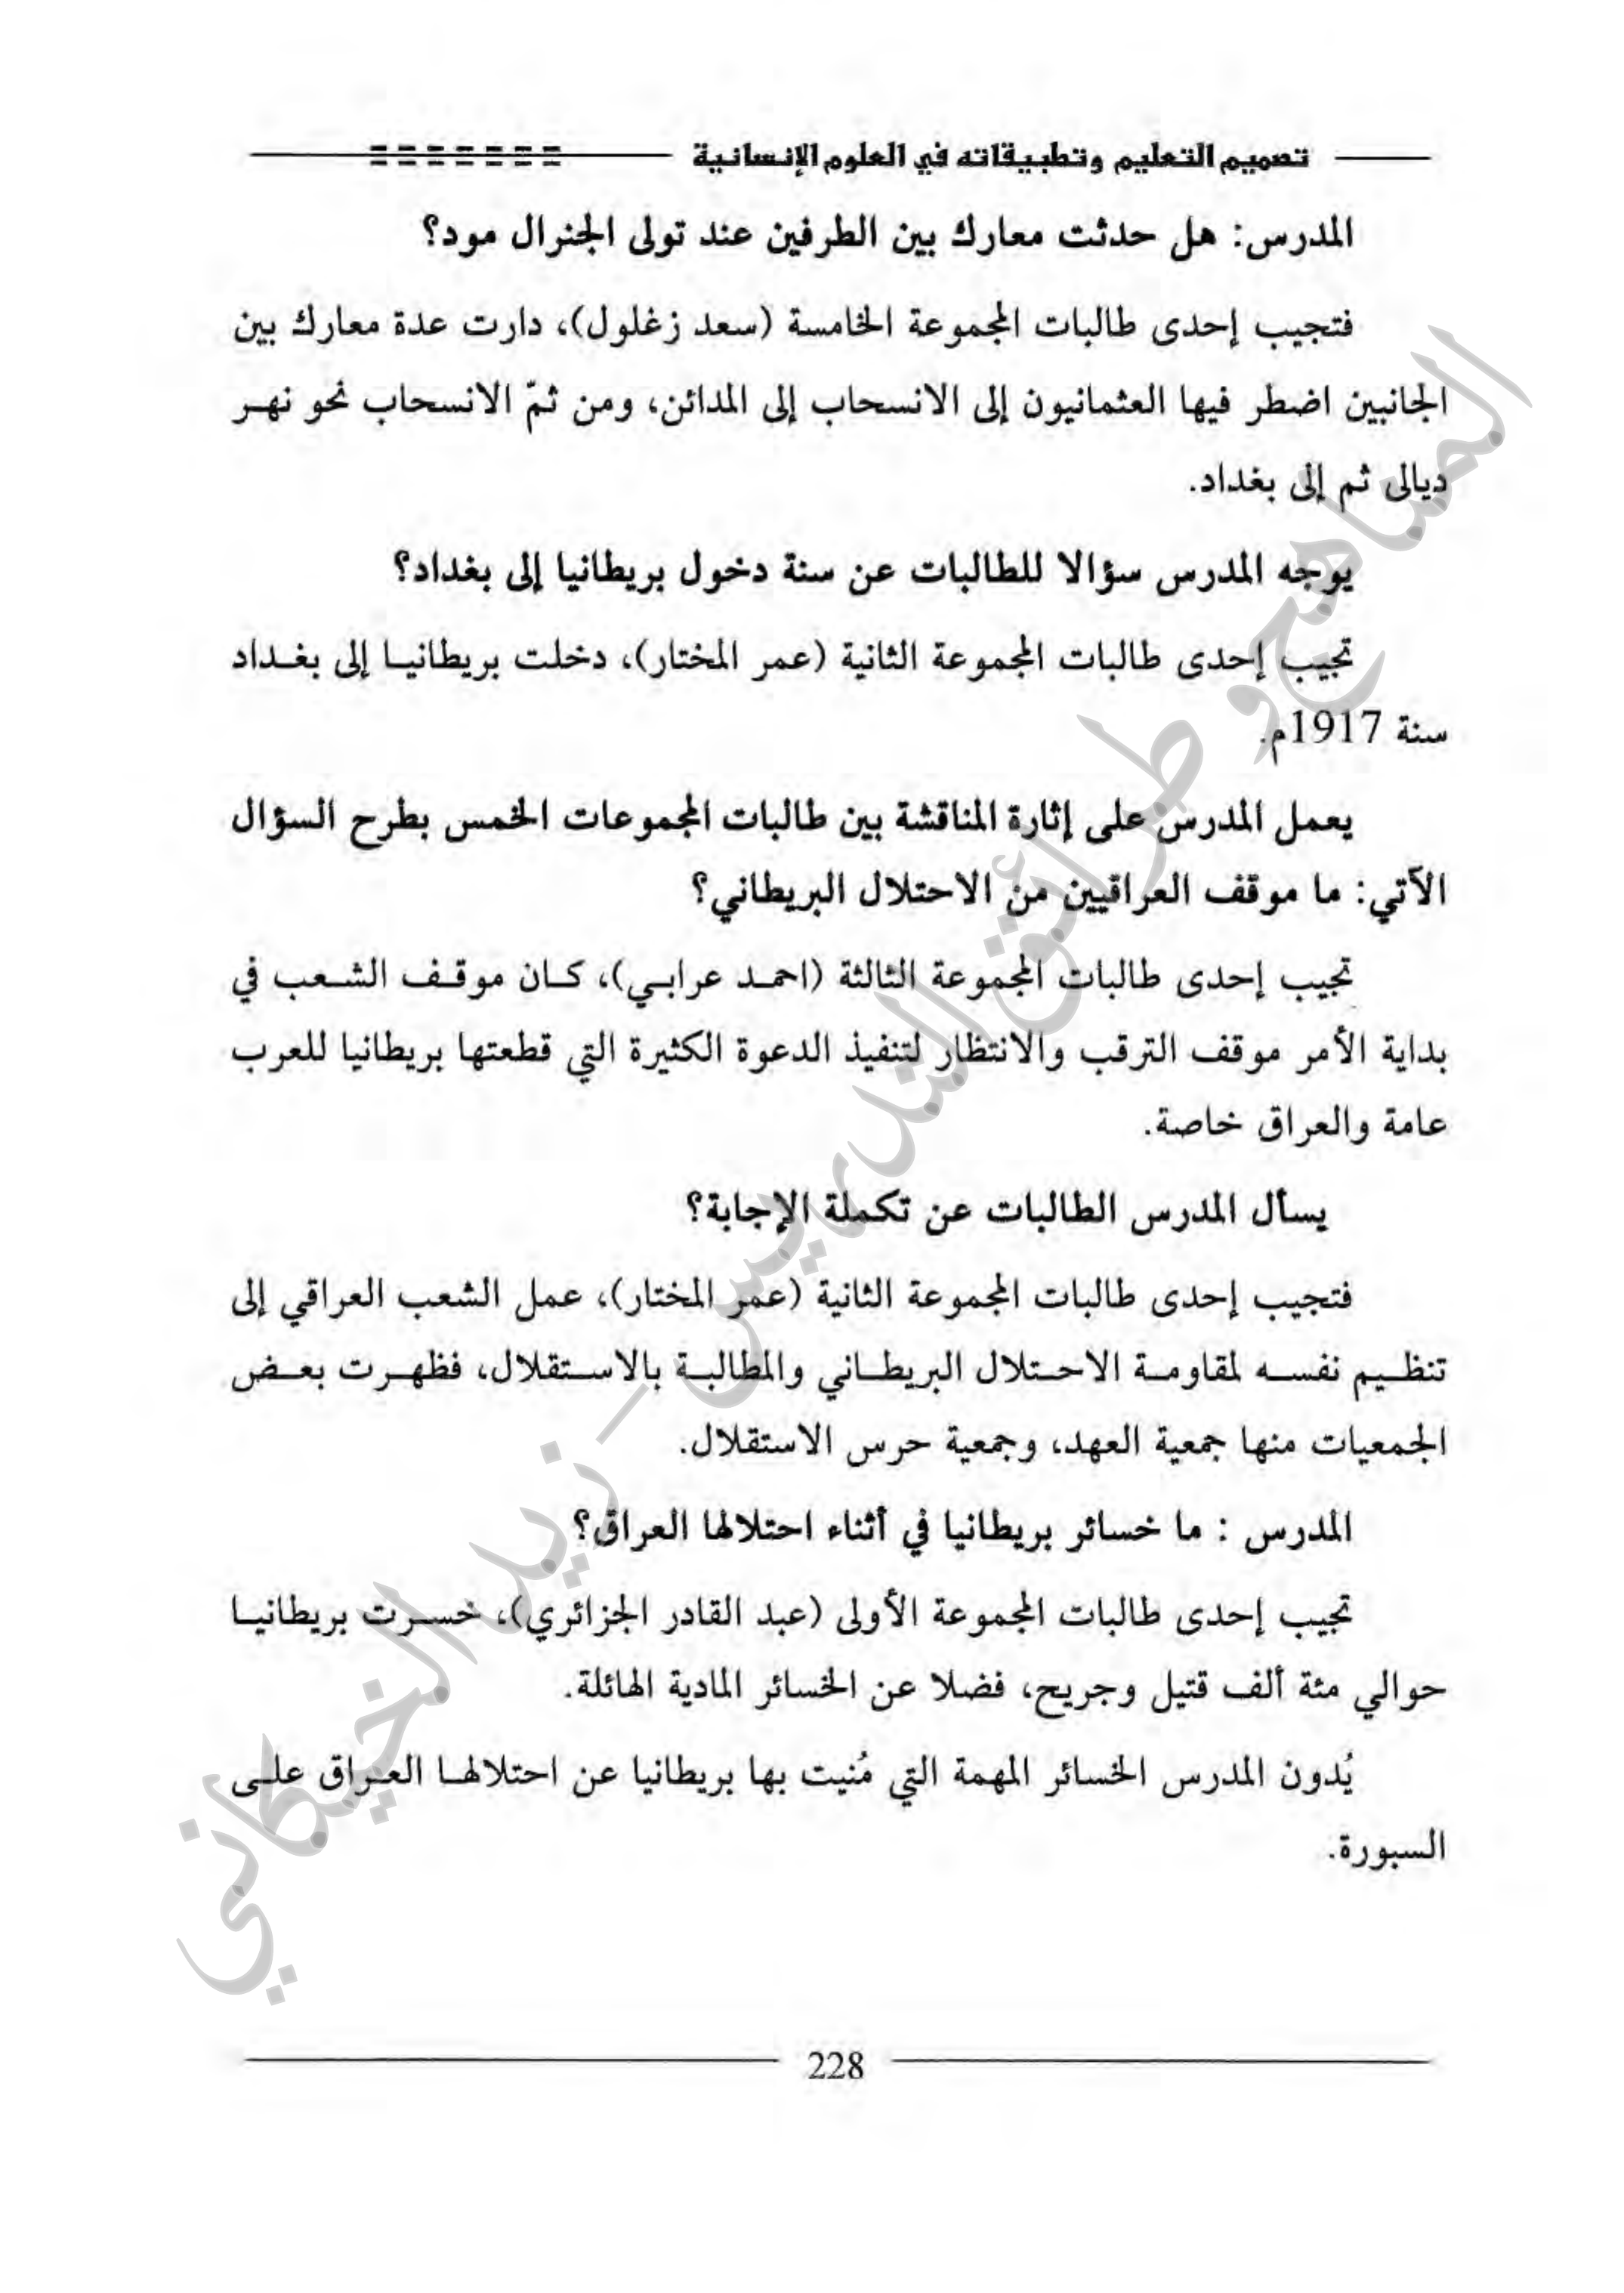 تصميم التعليم وتطبيقاته في العلوم الإنسانية
المدرس: هل حدثت معارك بين الطرفين عند تولى الجنرال مود؟
فتجيب إحدى طالبات المجموعة الخامسة (سعد زغلول)، دارت عدة معارك بين
الجانبين اضطر فيها العثمانيون إلى الانسحاب إلى المدائن، ومن ثمّ الانسحاب نحو نهر
ديالى ثم إلى بغداد.
يوجه المدرس سؤالا للطالبات عن سنة دخول بريطانيا إلى بغداد؟
تجيب إحدى طالبات المجموعة الثانية (عمر المختار)، دخلت بريطانيا إلى بغداد
سنة 1917م.
يعمل المدرس على إثارة المناقشة بين طالبات المجموعات الخمس بطرح السؤال
الآتي: ما موقف العراقيين من الاحتلال البريطاني؟
تجيب إحدى طالبات المجموعة الثالثة (احمد عرابي)، كان موقف الشعب في
بداية الأمر موقف الترقب والانتظار لتنفيذ الدعوة الكثيرة التي قطعتها بريطانيا للعرب
عامة والعراق خاصة.
يسأل المدرس الطالبات عن تكملة الإجابة؟
فتجيب إحدى طالبات المجموعة الثانية (عمر المختار)، عمل الشعب العراقي إلى
تنظيم نفسه لمقاومة الاحتلال البريطاني والمطالبة بالاستقلال، فظهرت بعض
الجمعيات منها جمعية العهد، وجمعية حرس الاستقلال.
المدرس : ما خسائر بريطانيا في أثناء احتلالها العراق؟
تجيب إحدى طالبات المجموعة الأولى (عبد القادر الجزائري)، خسرت بريطانيا
حوالي مئة ألف قتيل وجريح، فضلا عن الخسائر المادية الهائلة.
يُدون المدرس الخسائر المهمة التي مُنيت بها بريطانيا عن احتلالها العراق على
السبورة.
228
المناهج و طرائق التدريس - زيد الخيكاني